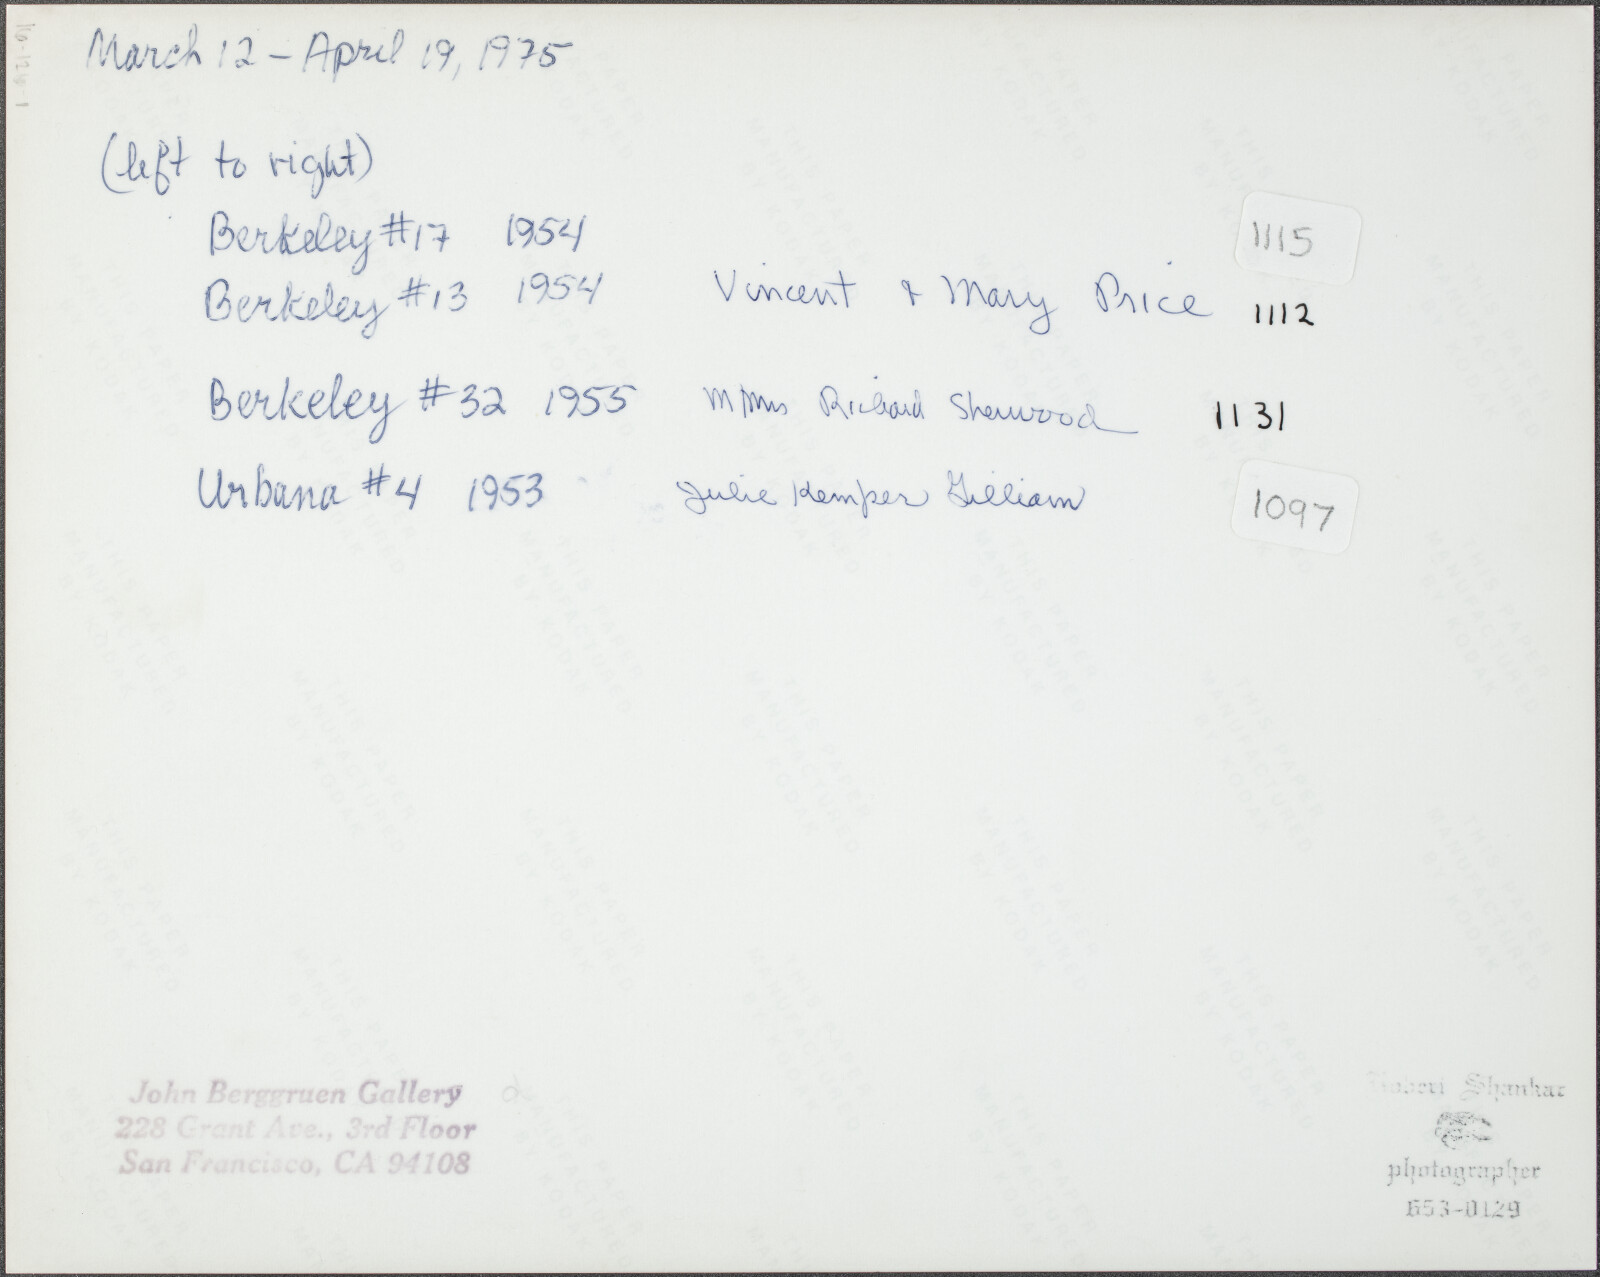 March 12 – April 19, 1975
(left to right)
Berkeley #17 1954 1115
Berkeley #13 1954 Vincent & Mary Price 1112
Berkeley #32 1955 M/Mrs Richard Sherwood 1131
Urbana #4 1953 Julie Kemper Gilliam 1097
John Berggruen Gallery
228 Grant Ave., 3rd Floor
San Francisco, CA 94108
Robert Shankar
photographer
653-0129
THIS PAPER
MANUFACTURED
BY KODAK